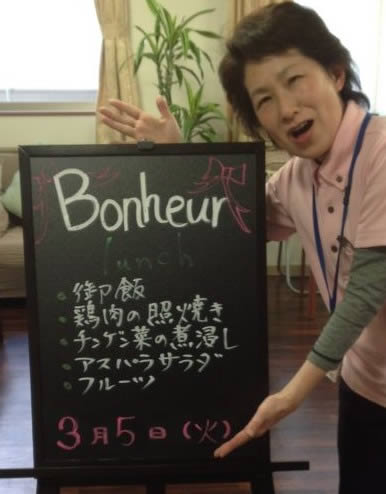 Bonheur
lunch
御飯
鶏肉の照焼き
チンゲン菜の煮浸し
アスパラサラダ
フルーツ
3月5日(火)